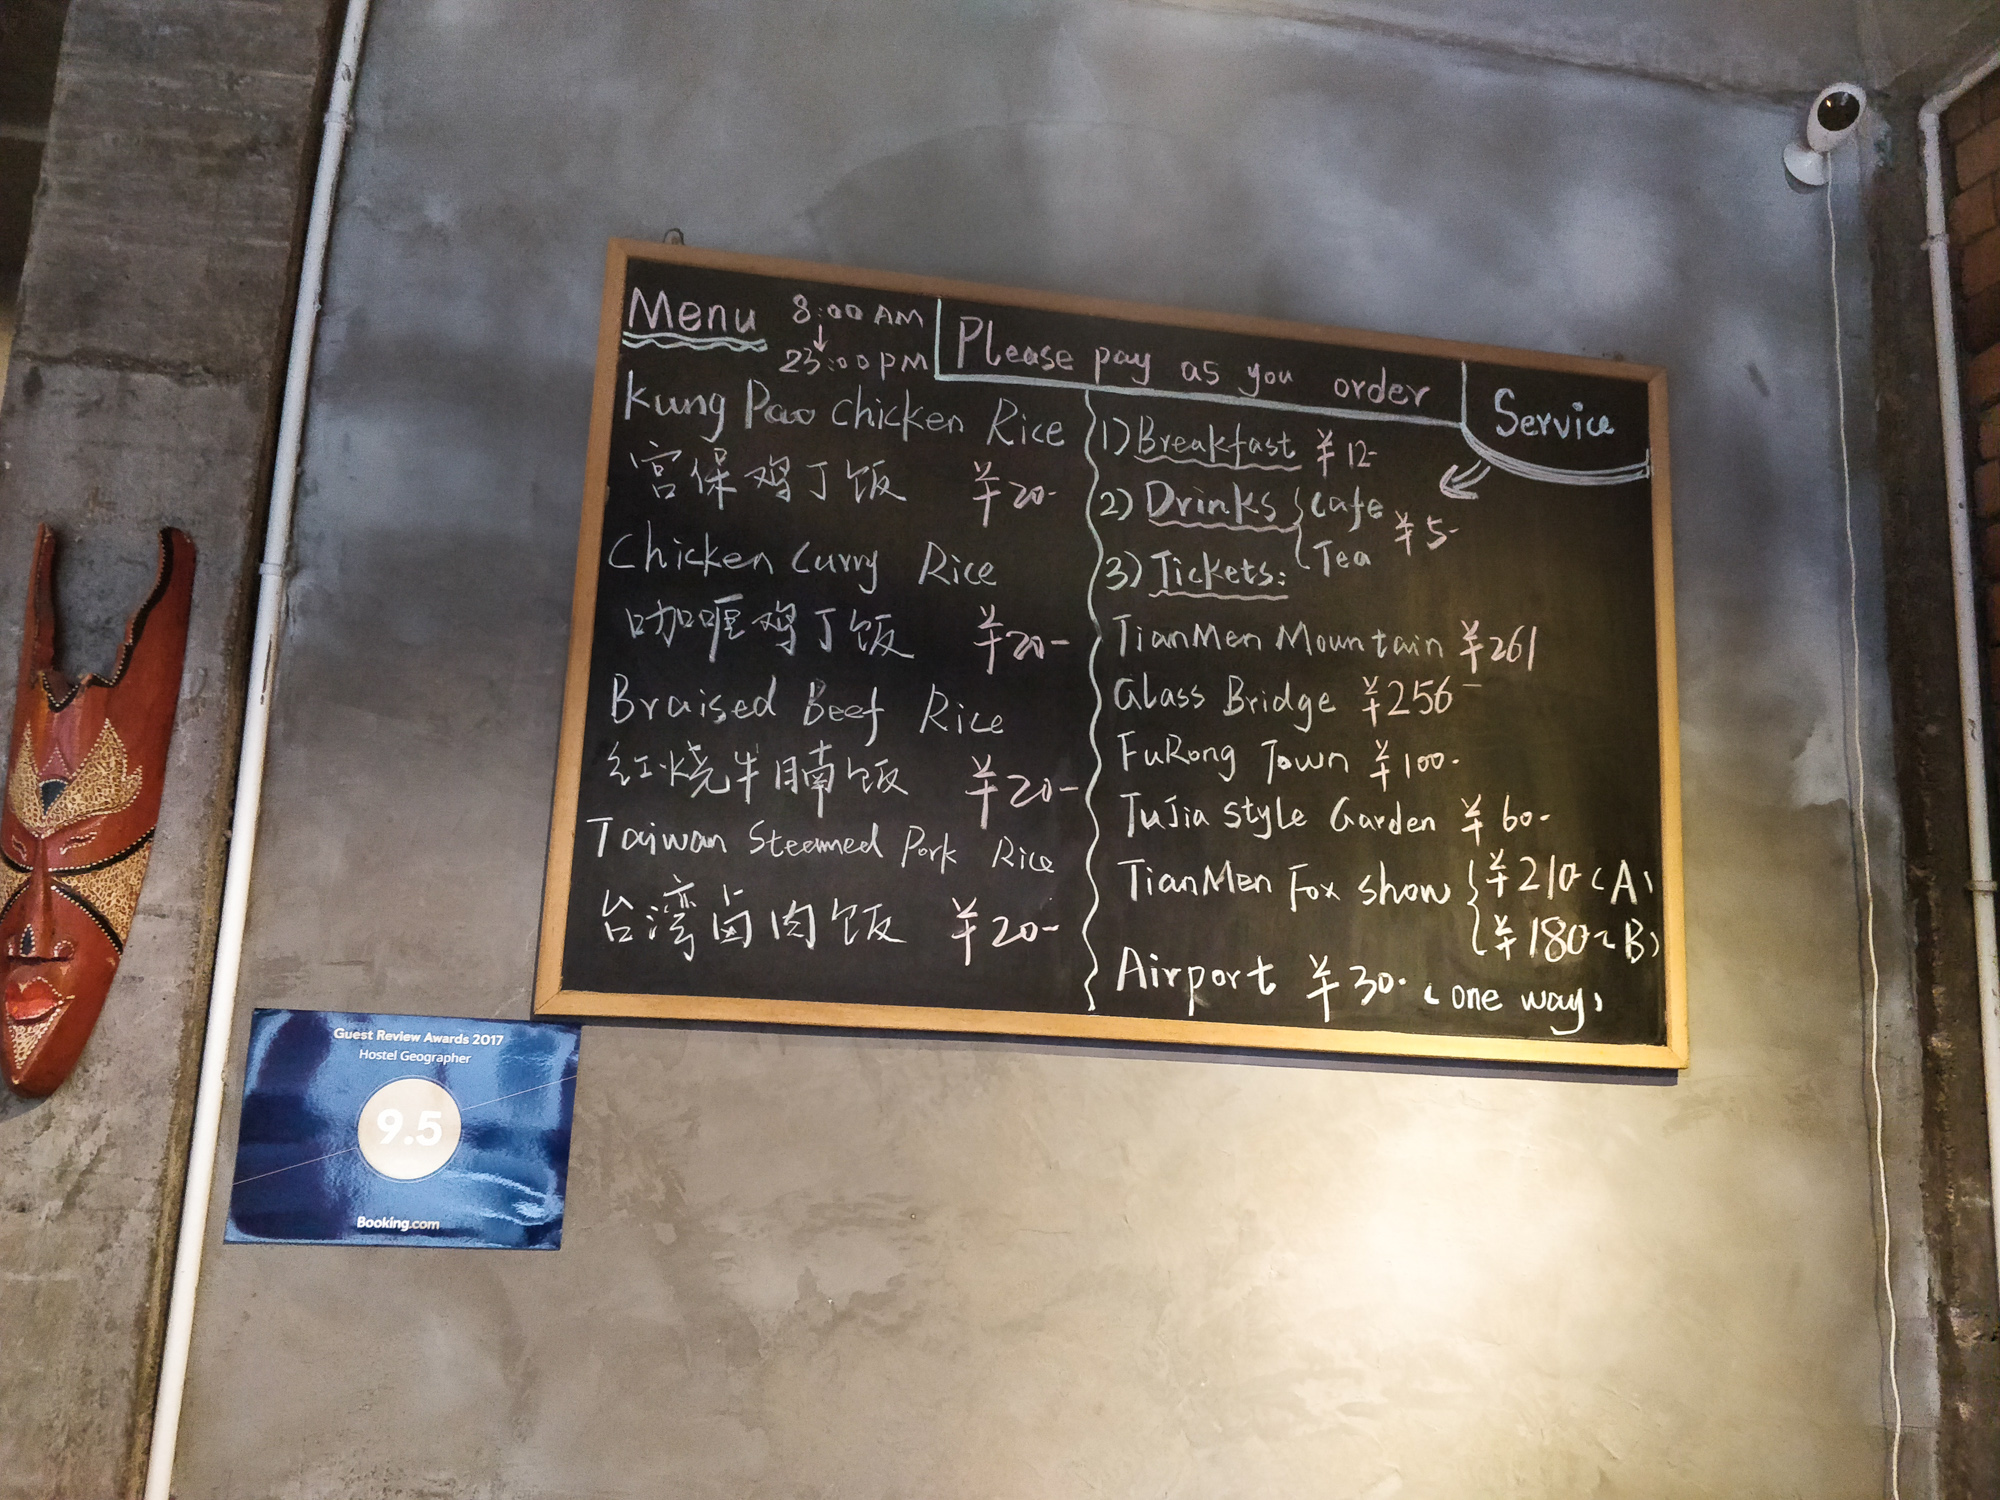 Menu
8:00 AM
↓
23:00 PM
Please pay as you order
Service
Kung Pao Chicken Rice
宫保鸡丁饭 ¥20-
Chicken Curry Rice
咖喱鸡丁饭 ¥20-
Braised Beef Rice
红烧牛腩饭 ¥20-
Taiwan Steamed Pork Rice
台湾卤肉饭 ¥20-
1) Breakfast ¥12-
2) Drinks { Cafe
Tea
¥5-
3) Tickets:
TianMen Mountain ¥261
Glass Bridge ¥256-
FuRong Town ¥100.
TuJia Style Garden ¥60-
TianMen Fox show { ¥210 (A)
¥180 (B)
Airport ¥30. (one way)
Guest Review Awards 2017
Hostel Geographer
9.5
Booking.com